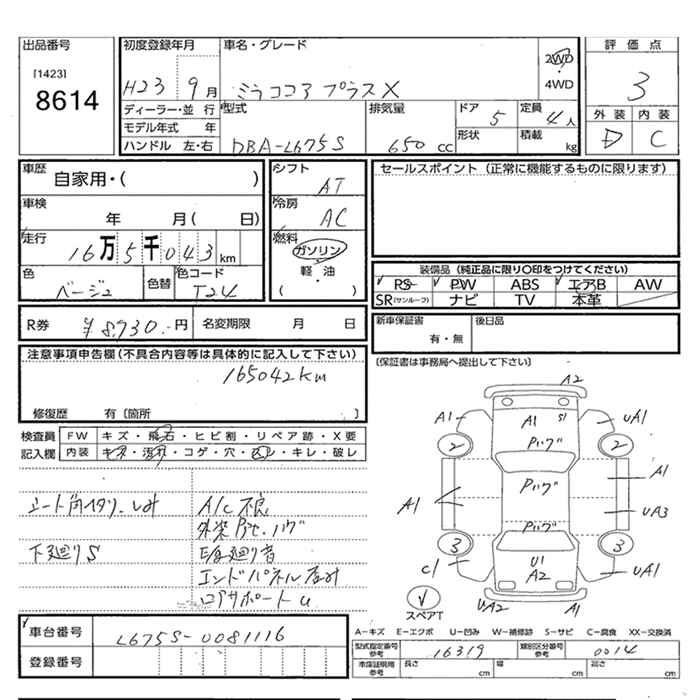 出品番号
[1423]
8614
初度登録年月
H23 9月
車名・グレード
ミラココア プラスX
2WD
・
4WD
評価点
3
ディーラー・並行
モデル年式 年
ハンドル 左・右
型式
DBA-L675S
排気量
650 cc
ドア
5
定員
4人
形状
積載
kg
外装 内装
D C
車歴
自家用・( )
車検
年 月( 日)
走行
16万5千043km
色
ベージュ
色替
色コード
T24
シフト
AT
冷房
AC
燃料
ガソリン
・
軽・油
( )
セールスポイント (正常に機能するものに限ります)
装備品 (純正品に限り○印をつけてください)
PS PW ABS エアB AW
SR(サンルーフ) ナビ TV 本革
R券 ¥8930.-円
名変期限 月 日
新車保証書
有・無
後日品
(保証書は事務局へ提出して下さい)
注意事項申告欄(不具合内容等は具体的に記入して下さい)
165042km
修復歴 有〔箇所 〕
検査員
記入欄
FW キズ・飛石・ヒビ割・リペア跡・X要
内装 キズ・汚れ・コゲ・穴・凹・キレ・破レ
シート内ヘタリ、しみ
下廻りS
A/C不良
外装
エンドパネル
コアサポートU
A2
A1
A1
S1
UA1
Pハゲ
2
2
Pハゲ
A1
A1
UA3
Pハゲ
3
3
C1
U1
A2
UA1
UA2
A1
スペアT
A-キズ E-エクボ U-凹み W-補修跡 S-サビ C-腐食 XX-交換済
車台番号
L675S-0081116
登録番号
型式指定番号
参考
16319
類別区分番号
参考
0014
車庫証明用
参考
長さ
cm
幅
cm
高さ
cm